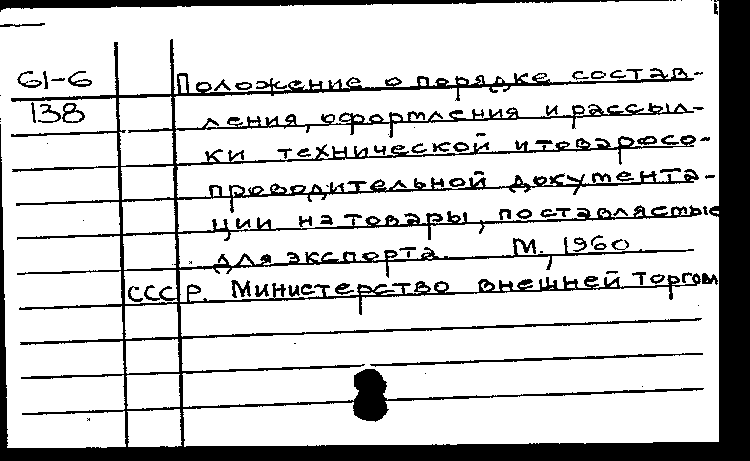 61-6
Положение о порядке состав-
138
ления, оформления и рассыл-
ки технической и товаросо-
проводительной документа-
ции на товары, поставляемые
для экспорта. М., 1960.
СССР. Министерство внешней торгов